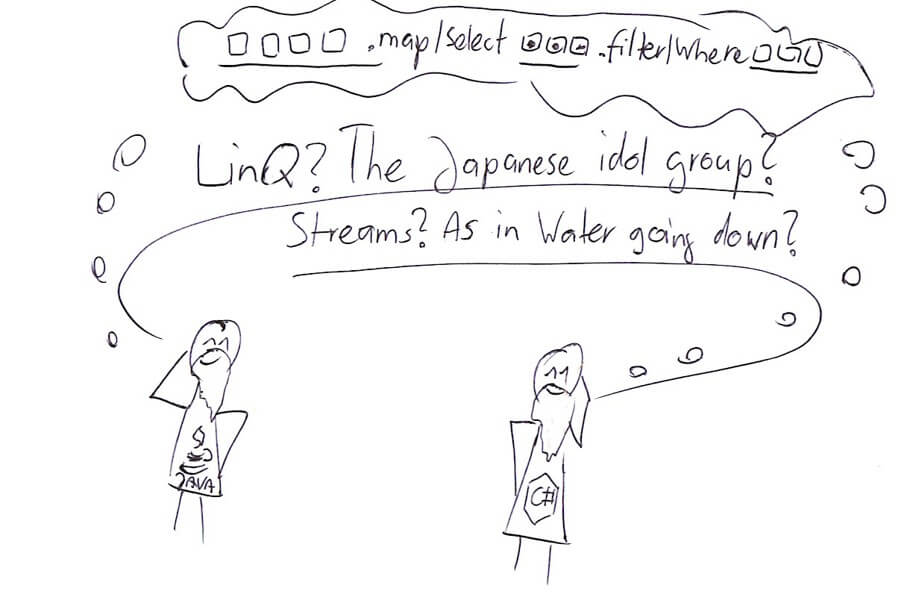 .map/select .filter/Where
LinQ? The Japanese idol group?
Streams? As in Water going down?
JAVA
C#